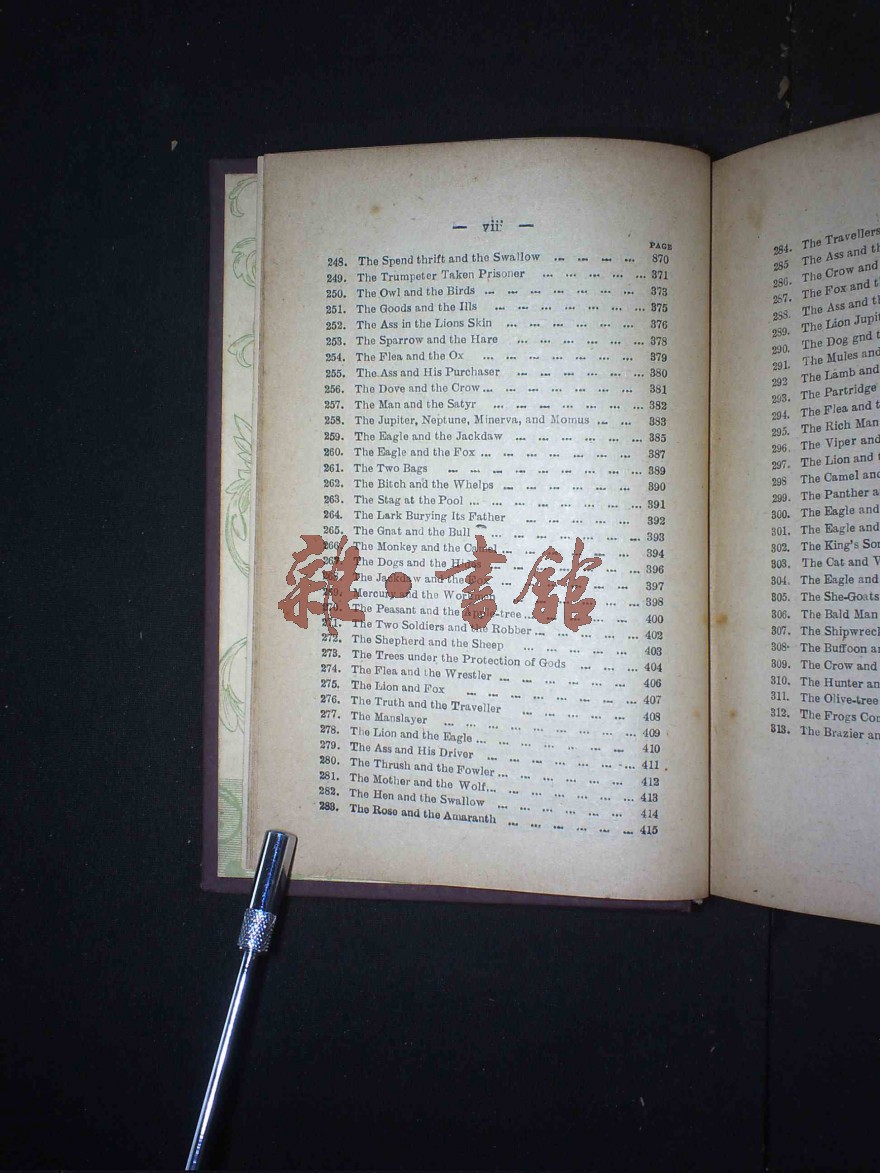 — vii —
PAGE
248. The Spend thrift and the Swallow ... ... ... ... 870
249. The Trumpeter Taken Prisoner ... ... ... ... ... 371
250. The Owl and the Birds ... ... ... ... ... ... ... 373
251. The Goods and the Ills ... ... ... ... ... ... ... 375
252. The Ass in the Lions Skin ... ... ... ... ... ... 376
253. The Sparrow and the Hare ... ... ... ... ... ... 378
254. The Flea and the Ox ... ... ... ... ... ... ... 379
255. The Ass and His Purchaser ... ... ... ... ... ... 380
256. The Dove and the Crow ... ... ... ... ... ... ... 381
257. The Man and the Satyr ... ... ... ... ... ... ... 382
258. The Jupiter, Neptune, Minerva, and Momus ... ... 383
259. The Eagle and the Jackdaw ... ... ... ... ... ... 385
260. The Eagle and the Fox ... ... ... ... ... ... ... 387
261. The Two Bags ... ... ... ... ... ... ... ... 389
262. The Bitch and the Whelps ... ... ... ... ... ... 390
263. The Stag at the Pool ... ... ... ... ... ... ... ... 391
264. The Lark Burying Its Father ... ... ... ... ... 392
265. The Gnat and the Bull ... ... ... ... ... ... ... 393
266. The Monkey and the Camel ... ... ... ... ... ... 394
267. The Dogs and the Hides ... ... ... ... ... ... 396
The Jackdaw and the Fox ... ... ... ... ... ... 397
Mercury and the Workmen ... ... ... ... ... ... 398
270. The Peasant and the Apple-tree ... ... ... ... ... 400
271. The Two Soldiers and the Robber ... ... ... ... ... 402
272. The Shepherd and the Sheep ... ... ... ... ... 403
273. The Trees under the Protection of Gods ... ... ... 404
274. The Flea and the Wrestler ... ... ... ... ... ... 406
275. The Lion and Fox ... ... ... ... ... ... ... 407
276. The Truth and the Traveller ... ... ... ... ... 408
277. The Manslayer ... ... ... ... ... ... ... ... 409
278. The Lion and the Eagle ... ... ... ... ... ... ... 410
279. The Ass and His Driver ... ... ... ... ... ... ... 411
280. The Thrush and the Fowler ... ... ... ... ... ... 412
281. The Mother and the Wolf ... ... ... ... ... ... ... 413
282. The Hen and the Swallow ... ... ... ... ... ... 414
283. The Rose and the Amaranth ... ... ... ... ... ... 415
雜·書館
284. The Travellers
285 The Ass and
286. The Crow and
287. The Fox and
288. The Ass and
289. The Lion
290. The Dog gnd
291. The Mules and
292 The Lamb and
293. The Partridge
294. The Flea and
295. The Rich Man
296. The Viper and
297. The Lion and
298 The Camel
299. The Panther
300. The Eagle and
301. The Eagle and
302. The King's
303. The Cat and
304. The Eagle and
305. The She-Goats
306. The Bald Man
307. The
308. The Buffoon
309. The Crow and
310. The Hunter
311. The Olive-tree
312. The Frogs
313. The Brazier